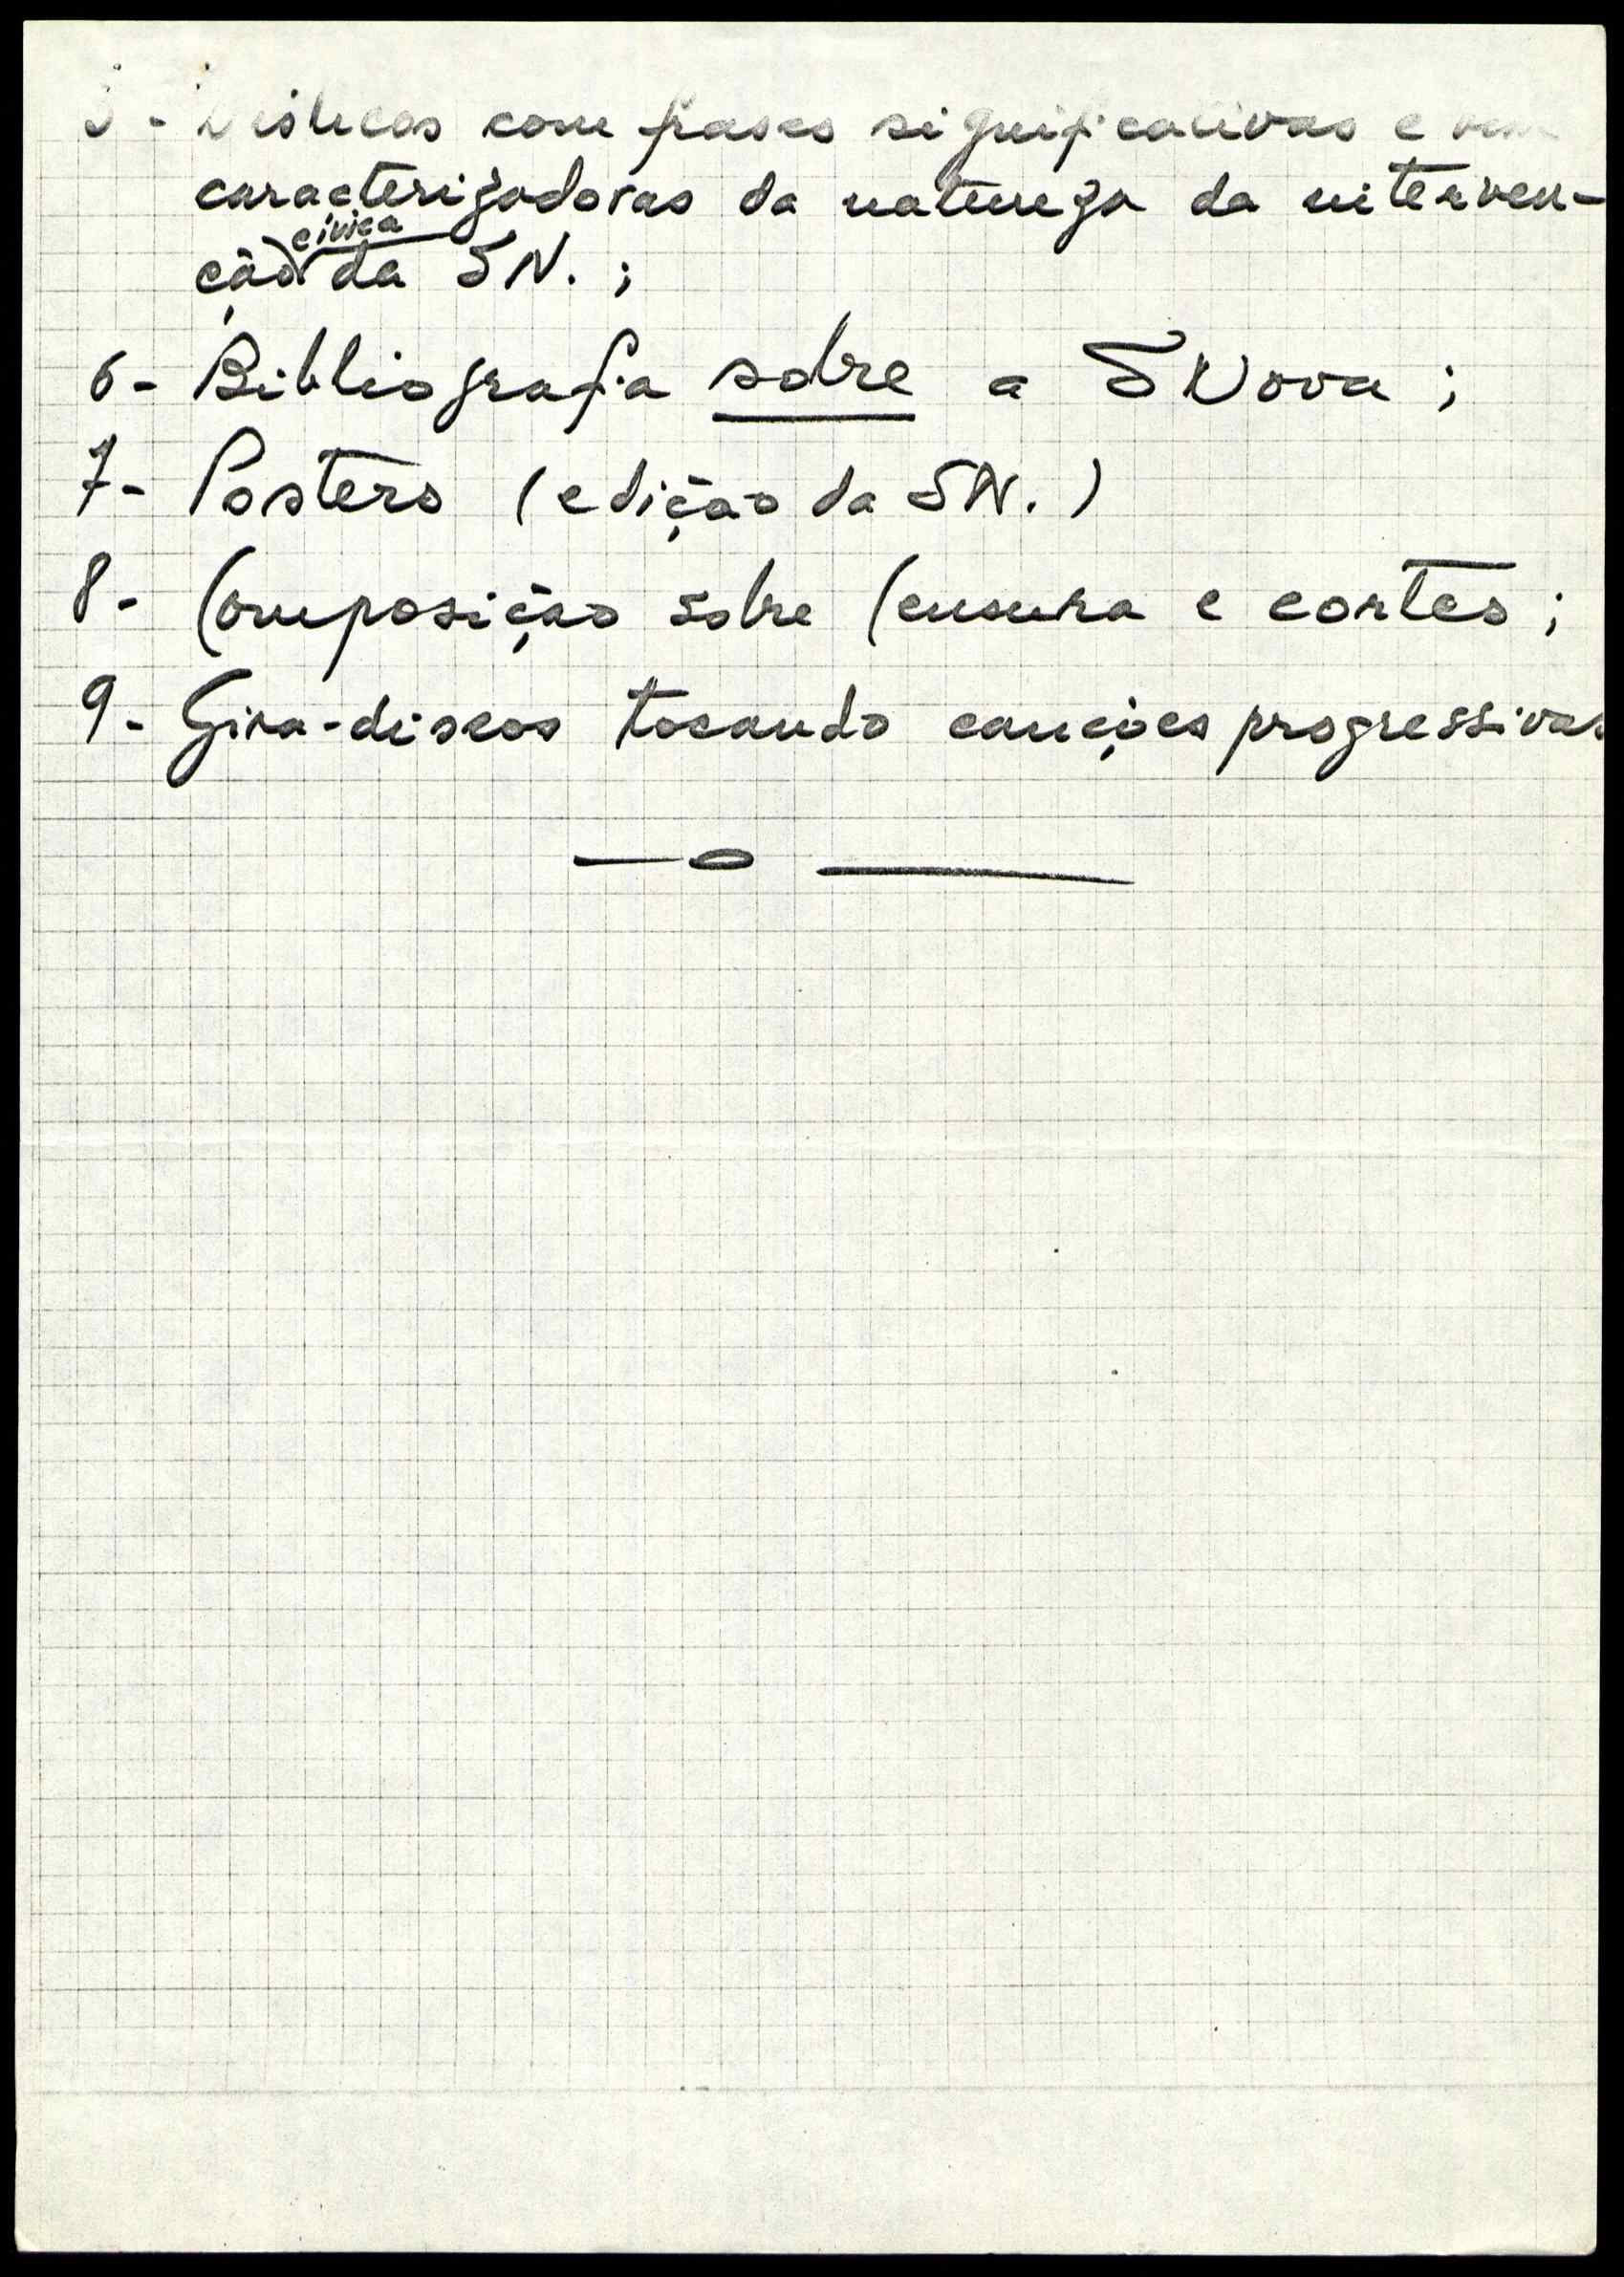 5 - Dísticos com frases significativas e bem
caracterizadoras da natureza da interven-
ção cívica da SN. ;
6 - Bibliografia sobre a SNova ;
7 - Posters (edição da SN.)
8 - Composição sobre Censura e cortes ;
9 - Gira-discos tocando canções progressivas